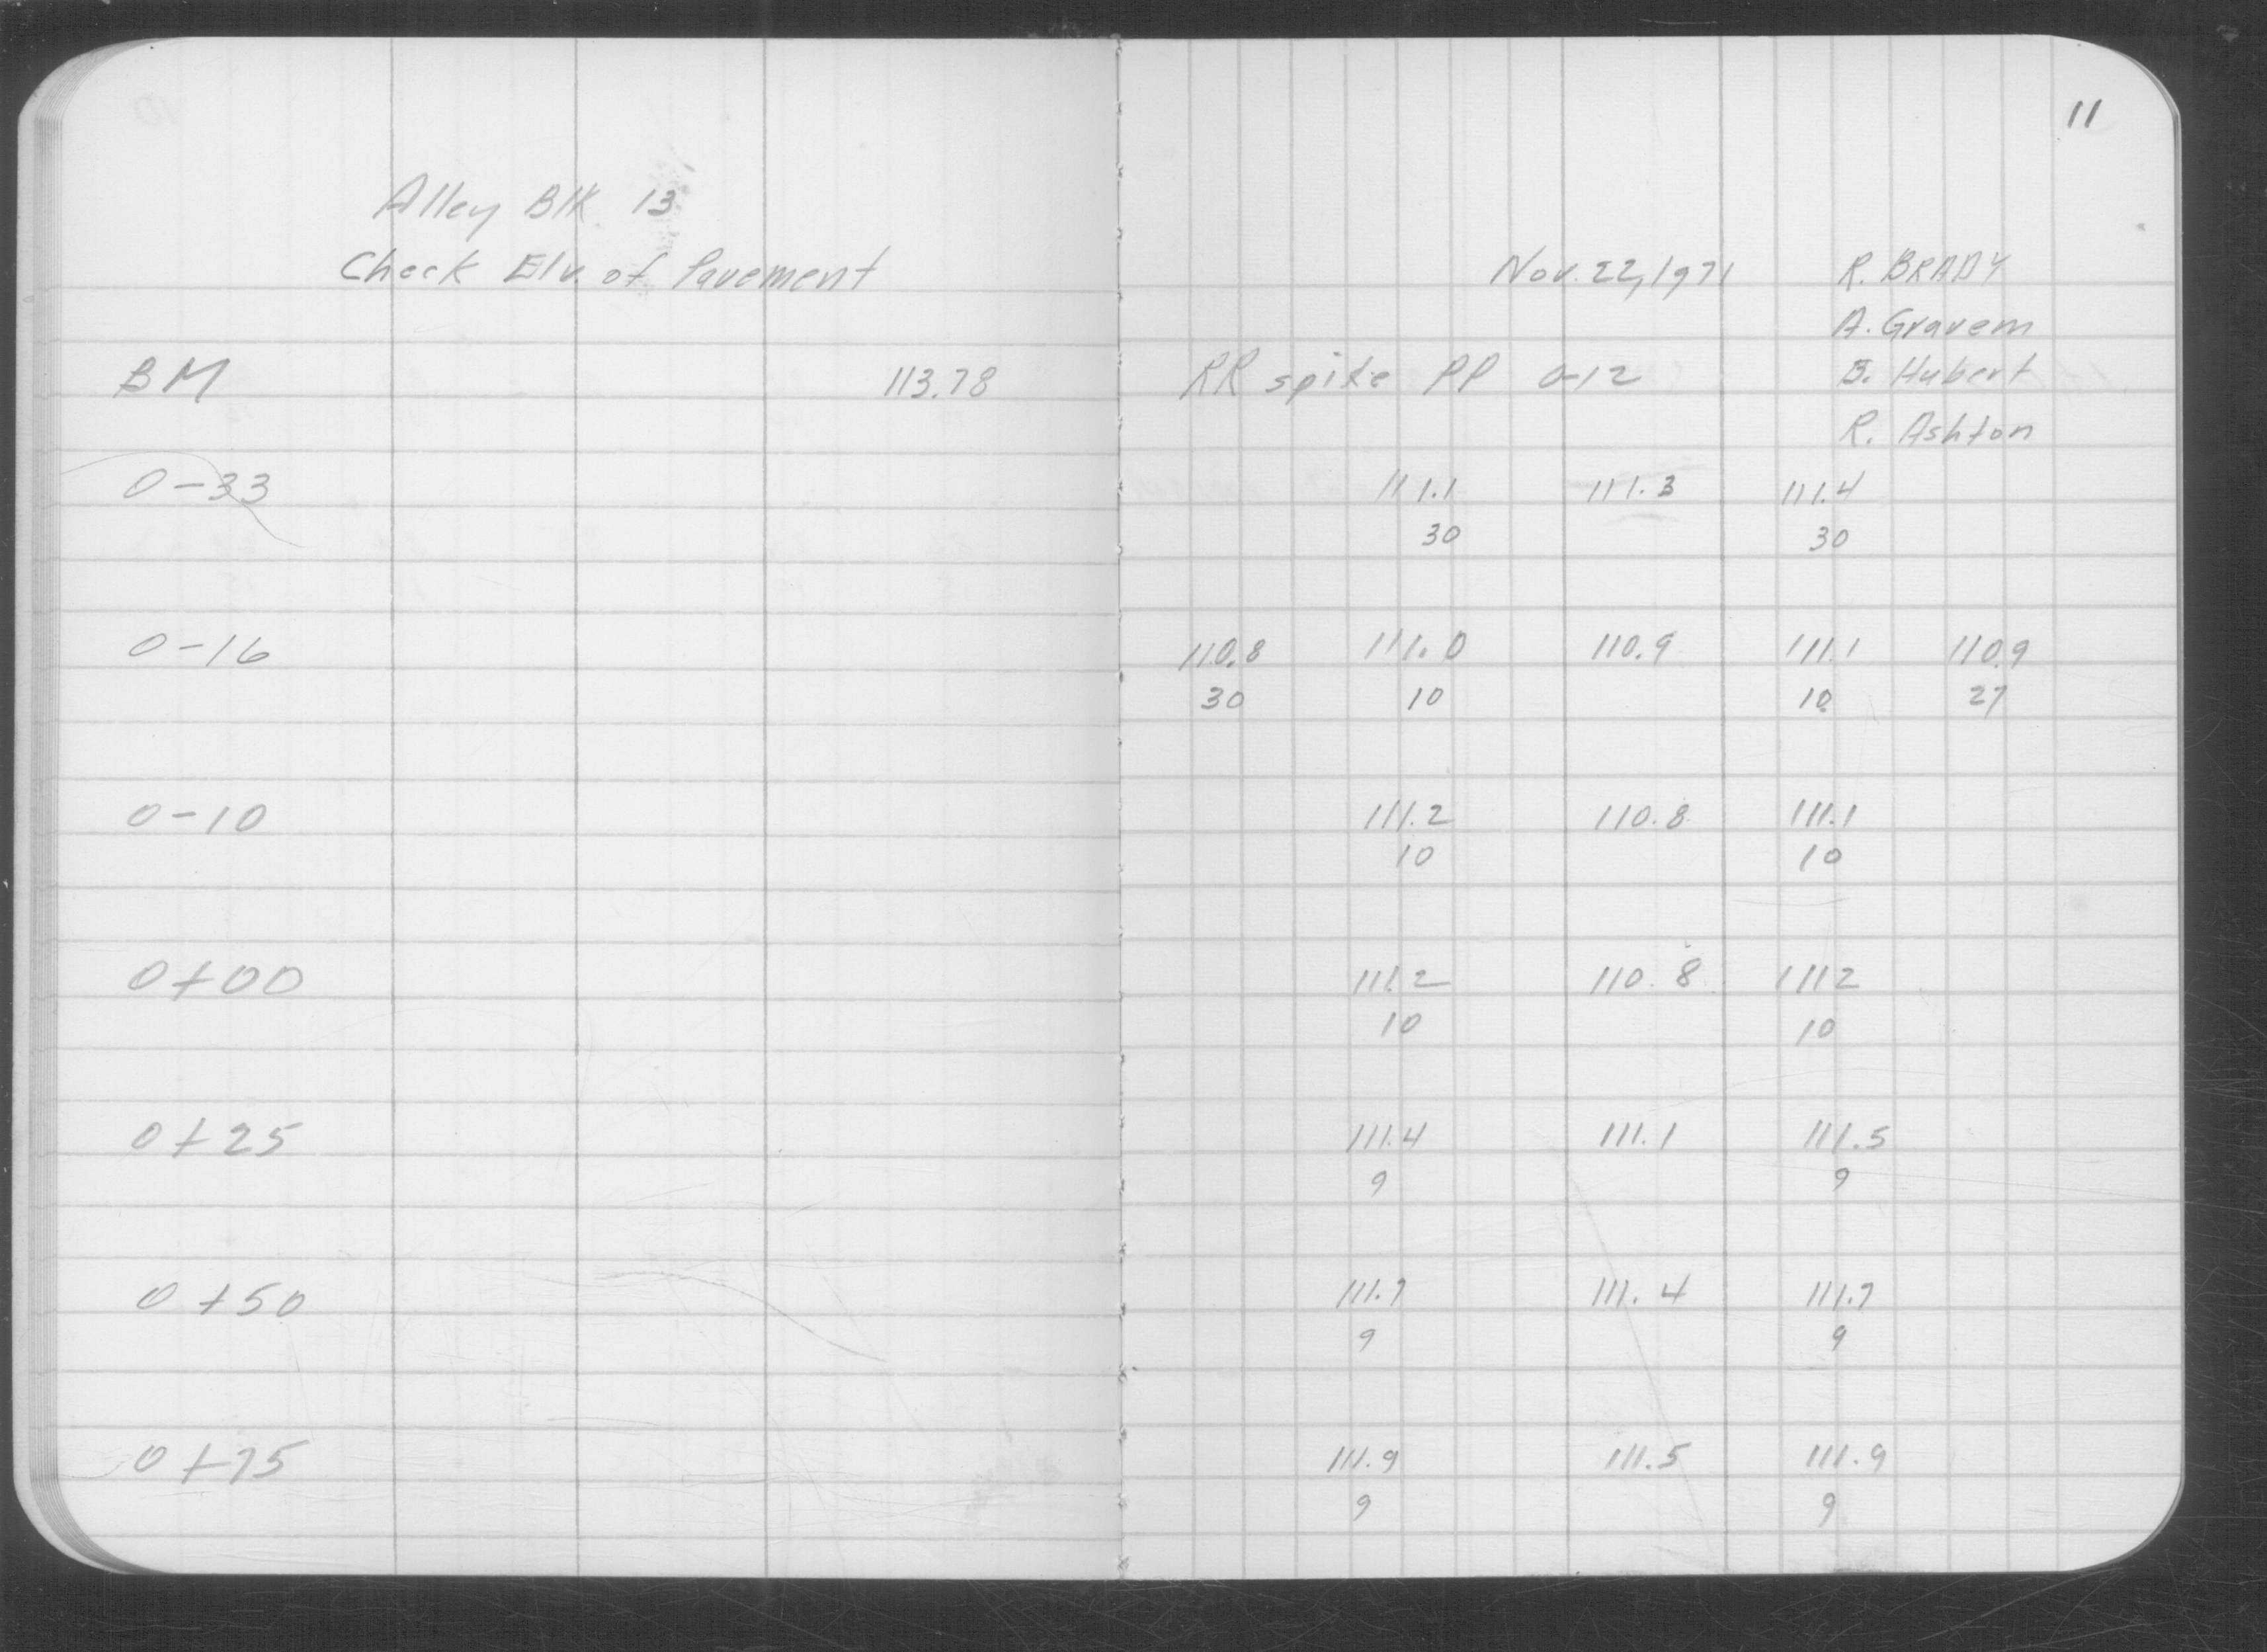 11
Alley Blk 13
Check Elv. of Pavement
Nov. 22, 1971 R. BRADY
A. Gravem
BM 113.78 RR spike PP 0-12 B. Hubert
R. Ashton
0-33 111.1 111.3 111.4
30 30
0-16 110.8 111.0 110.9 111.1 110.9
30 10 10 27
0-10 111.2 110.8 111.1
10 10
0+00 111.2 110.8 111.2
10 10
0+25 111.4 111.1 111.5
9 9
0+50 111.7 111.4 111.7
9 9
0+75 111.9 111.5 111.9
9 9